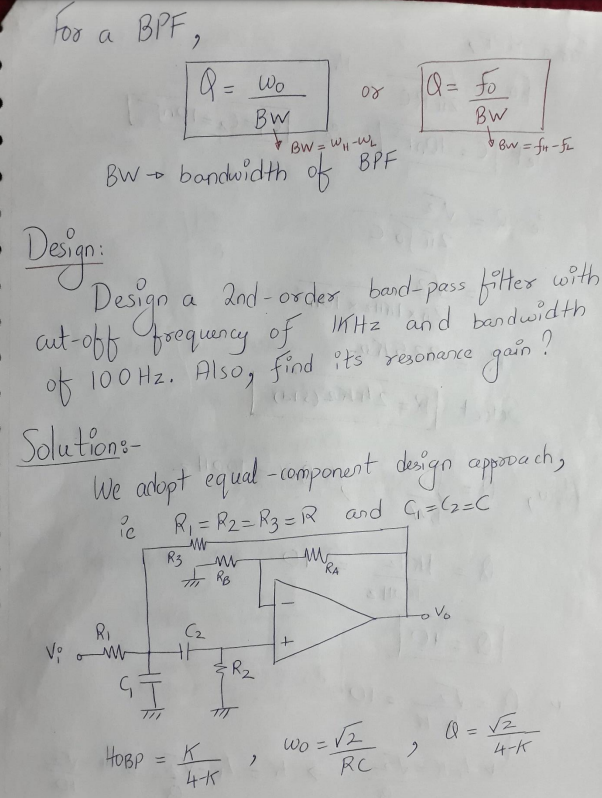 For a BPF,
Q = ω₀/BW or Q = f₀/BW
BW = ωH - ωL BW = fH - fL
BW → bandwidth of BPF
Design:
Design a 2nd-order band-pass filter with
cut-off frequency of 1KHz and bandwidth
of 100 Hz. Also, find its resonance gain?
Solution:-
We adopt equal-component design approach,
ie R₁ = R₂ = R₃ = R and C₁ = C₂ = C
R₃ RB RA
Vi R₁ C₂ - + Vo
C₁ R₂
HOBP = K/4-K , ω₀ = √2/RC , Q = √2/4-K